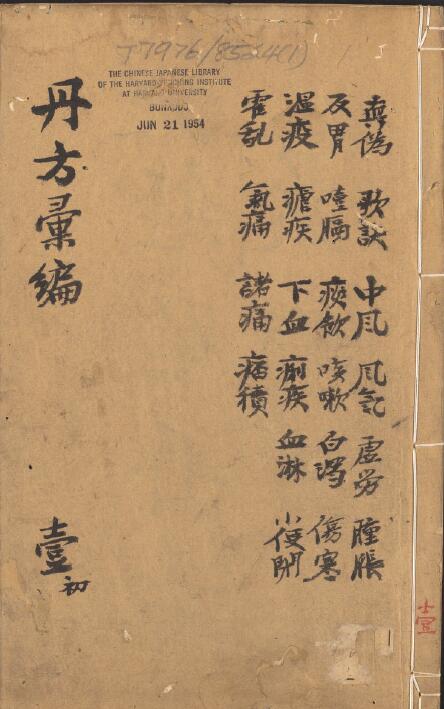 T7976/8564(1)
THE CHINESE JAPANESE LIBRARY
OF THE HARVARD-YENCHING INSTITUTE
AT HARVARD UNIVERSITY
JUN 21 1954
真偽 歌訣 中風 風气 虛労 腫脹
反胃 噎膈 痰飲 咳嗽 白濁 傷寒
溫疫 瘧疾 下血 痢疾 血淋 小便閉
霍乱 氣痛 諸痛 痞積
丹方彙編
壹初
士宣